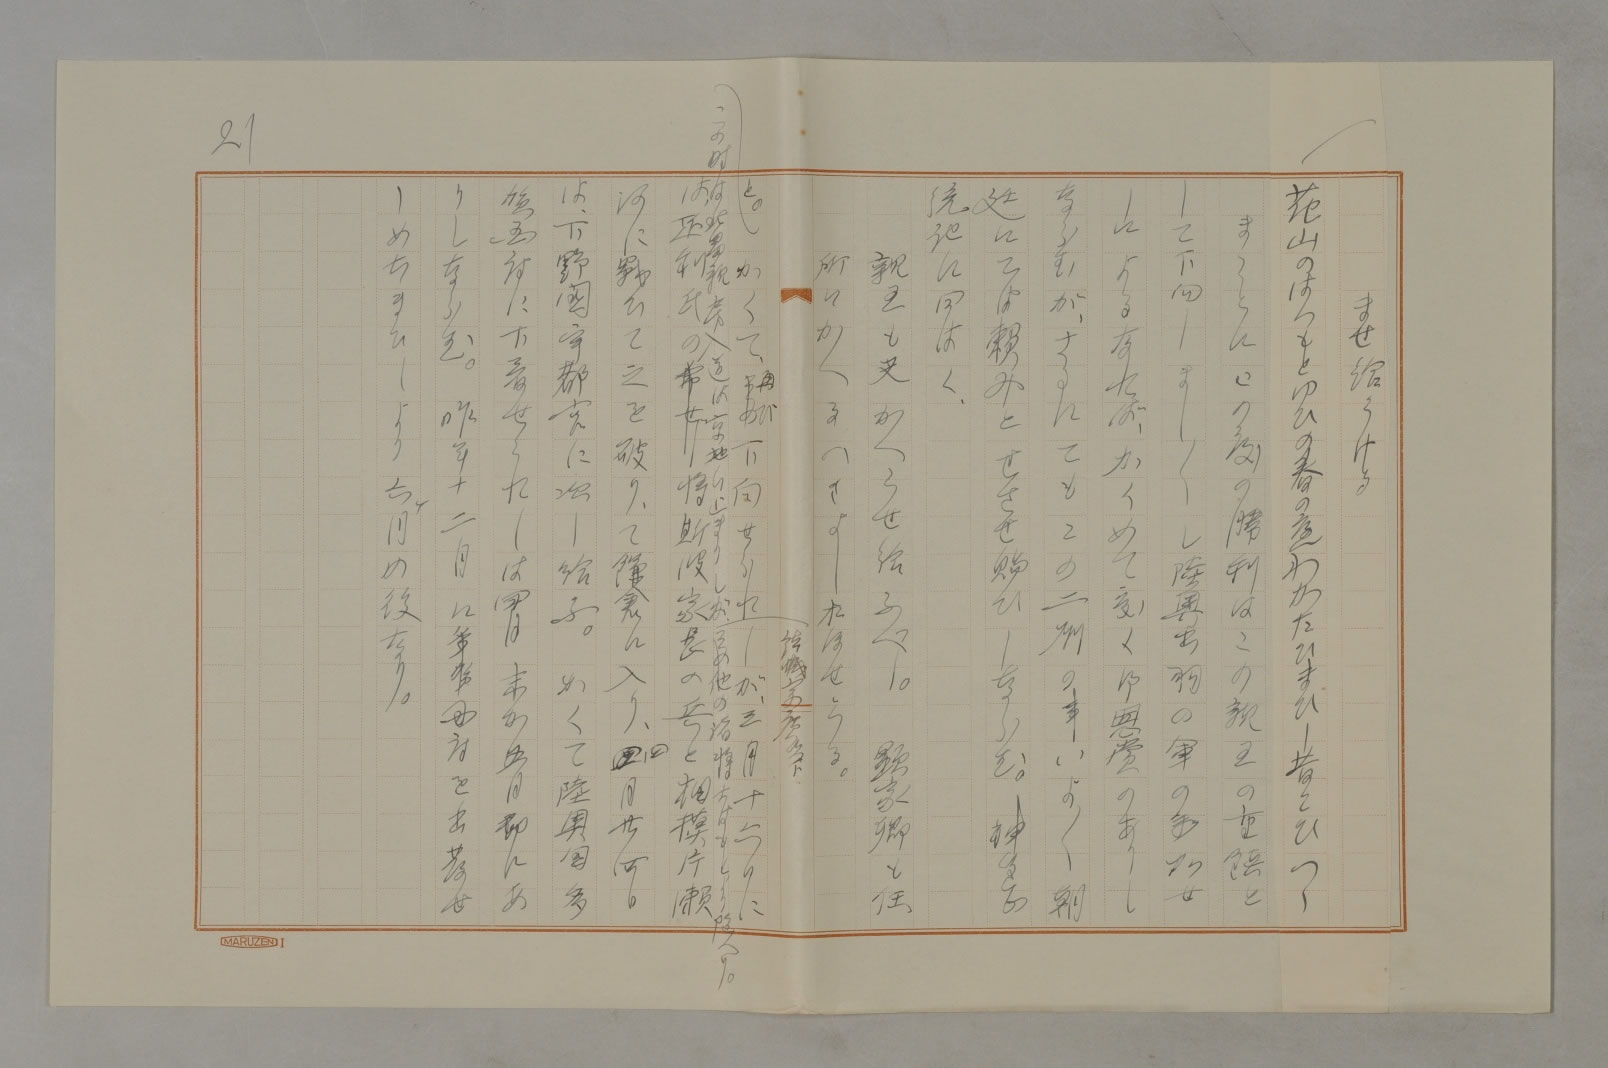 21
ませ給うける
花山のはつもとゆひの春の庭わかたちまひし昔こひつゝ
まことにこの度の勝利はこの親王の重鎮と
して下向しましゝし陸奥出羽の軍の参加せ
しによるなれば、かくめて度く御恩賞のありし
ならむが、さるにてもこの二州の事いよゝゝ朝
廷にては頼みとせさせ賜ひしならむ。神皇正
統記に曰はく、
親王も又かへらせ給ふべし。顕家卿も任
所にかへるべきよしおほせらる。
と。かくて、再び下向せられしが、三月十六日に
結城宗広
この時は北畠親房入道は京地に止まりしが、その他の諸将
は足利氏の
将斯波家長の兵と相模片瀬
河に戦ひて之を破り、て鎌倉に入り、四月廿
は、下野国宇都宮に次し給ふ。かくて陸奥国多
賀国府に下着せられしは
五月
にあ
りしならむ。昨年十二月に
国府を出発せ
しめたまひしより六ケ月の後なり。
MARUZEN I